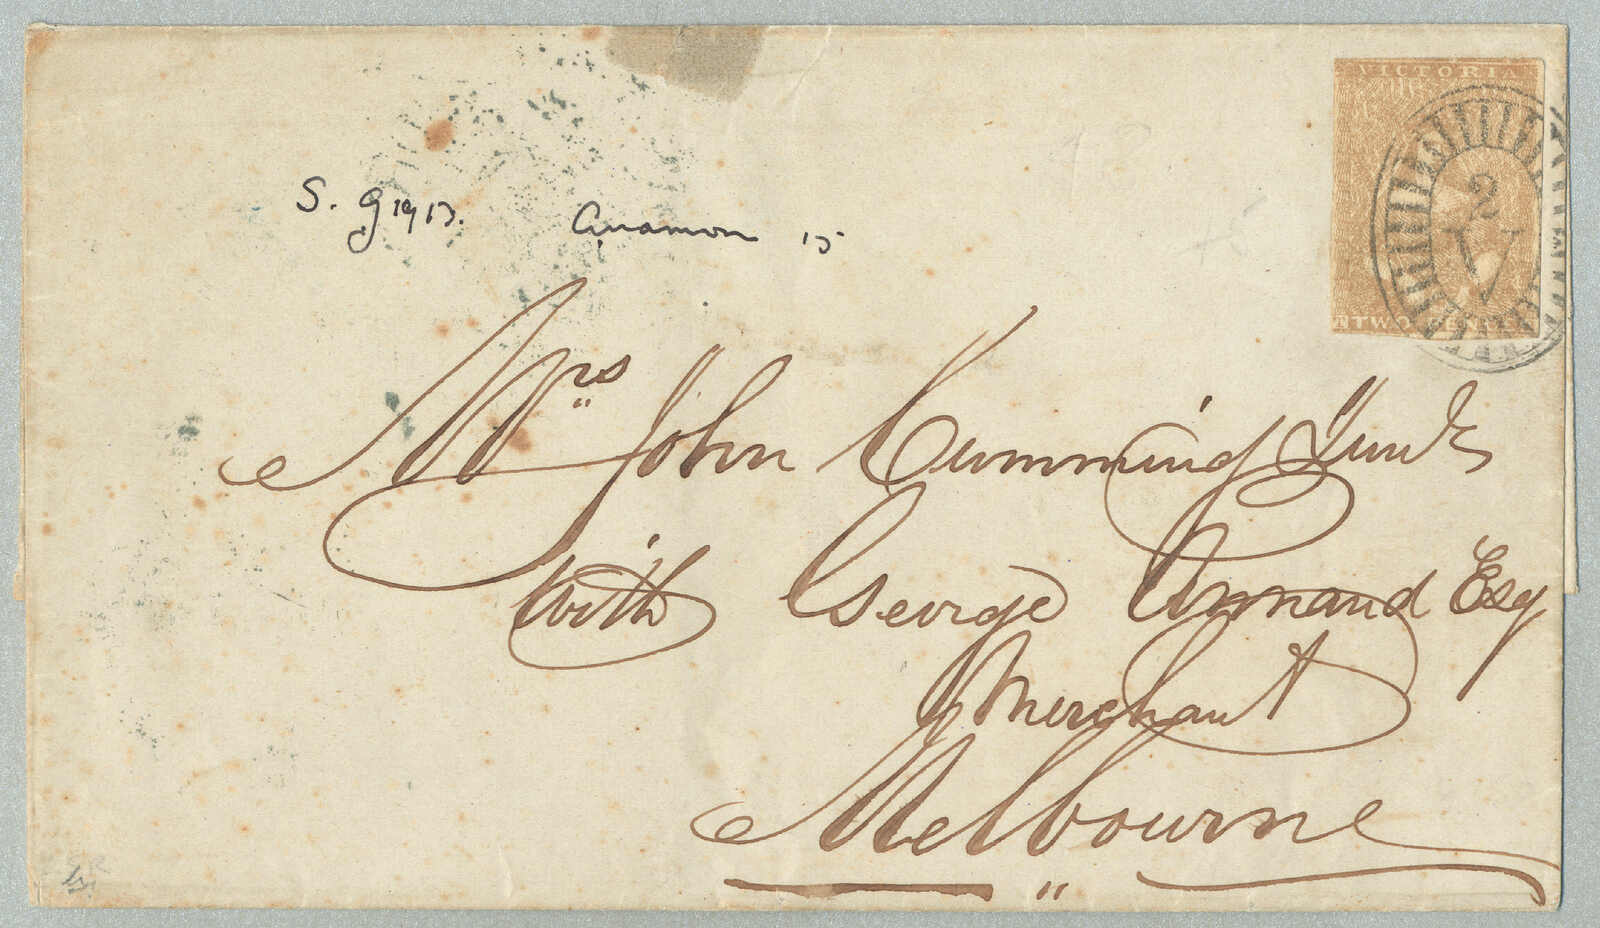 VICTORIA
2
V
TWO PENCE
S. G 1913. Cinamon 15
Mrs John Cumming Junr
with George Annand Esq
Merchant
Melbourne